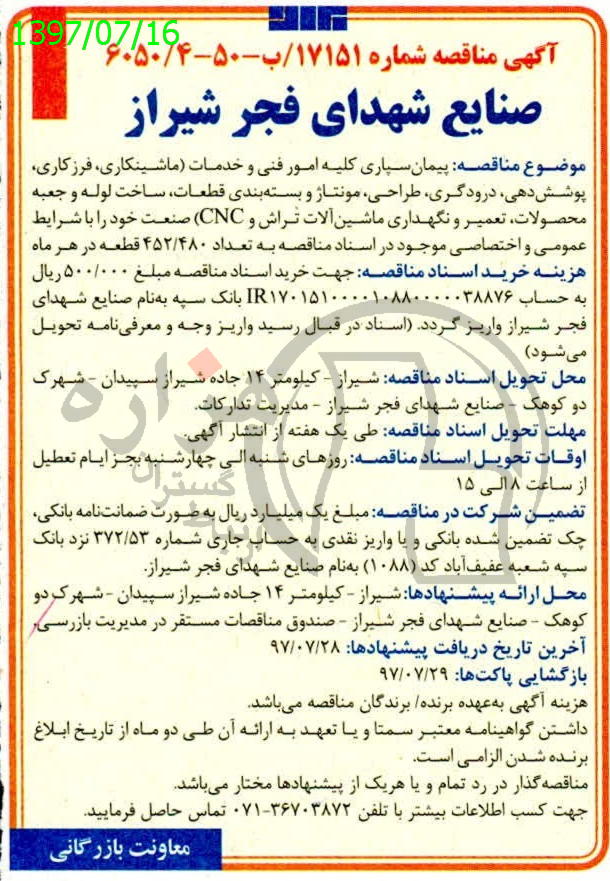 1397/07/16
آگهی مناقصه شماره ۱۷۱۵۱/ب-۵۰-۶۰۵۰/۴
صنایع شهدای فجر شیراز
موضوع مناقصه: پیمان‌سپاری کلیه امور فنی و خدمات (ماشینکاری، فرزکاری،
پوشش‌دهی، درودگری، طراحی، مونتاژ و بسته‌بندی قطعات، ساخت لوله و جعبه
محصولات، تعمیر و نگهداری ماشین‌آلات تراش و CNC) صنعت خود را با شرایط
عمومی و اختصاصی موجود در اسناد مناقصه به تعداد ۴۵۲/۴۸۰ قطعه در هر ماه
هزینه خرید اسناد مناقصه: جهت خرید اسناد مناقصه مبلغ ۵۰۰/۰۰۰ ریال
به حساب IR۱۷۰۱۵۱۰۰۰۰۱۰۸۸۰۰۰۰۰۳۸۸۷۶ بانک سپه به‌نام صنایع شهدای
فجر شیراز واریز گردد. (اسناد در قبال رسید واریز وجه و معرفی‌نامه تحویل
می‌شود)
محل تحویل اسناد مناقصه: شیراز - کیلومتر ۱۴ جاده شیراز سپیدان - شهرک
دو کوهک - صنایع شهدای فجر شیراز - مدیریت تدارکات.
مهلت تحویل اسناد مناقصه: طی یک هفته از انتشار آگهی.
اوقات تحویل اسناد مناقصه: روزهای شنبه الی چهارشنبه بجز ایام تعطیل
از ساعت ۸ الی ۱۵
تضمین شرکت در مناقصه: مبلغ یک میلیارد ریال به صورت ضمانت‌نامه بانکی،
چک تضمین شده بانکی و یا واریز نقدی به حساب جاری شماره ۳۷۲/۵۳ نزد بانک
سپه شعبه عفیف‌آباد کد (۱۰۸۸) به‌نام صنایع شهدای فجر شیراز.
محل ارائه پیشنهادها: شیراز - کیلومتر ۱۴ جاده شیراز سپیدان - شهرک دو
کوهک - صنایع شهدای فجر شیراز - صندوق مناقصات مستقر در مدیریت بازرسی.
آخرین تاریخ دریافت پیشنهادها: ۹۷/۰۷/۲۸
بازگشایی پاکت‌ها: ۹۷/۰۷/۲۹
هزینه آگهی به‌عهده برنده/ برندگان مناقصه می‌باشد.
داشتن گواهینامه معتبر سمتا و یا تعهد به ارائه آن طی دو ماه از تاریخ ابلاغ
برنده شدن الزامی است.
مناقصه‌گذار در رد تمام و یا هریک از پیشنهادها مختار می‌باشد.
جهت کسب اطلاعات بیشتر با تلفن ۳۶۷۰۳۸۷۲-۰۷۱ تماس حاصل فرمایید.
معاونت بازرگانی